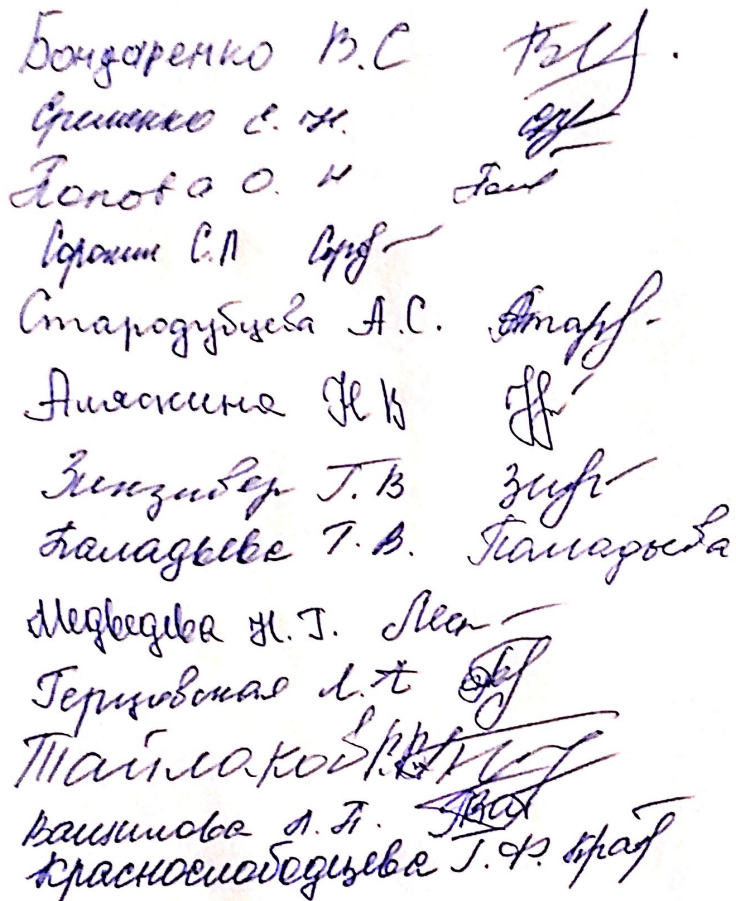 Бондаренко В.С
Еременко Е. Н.
Попова О. Н
Сорокин С.П
Стародубцева А.С.
Аляскина Н В
Зинзивер Г. В
Паладьева Т. В. Паладьева
Медведева Н. Г. Мед
Герцовская Л. А
Тайлаков
Вашилова А. П.
Краснослободцева Г. Ф. Краб